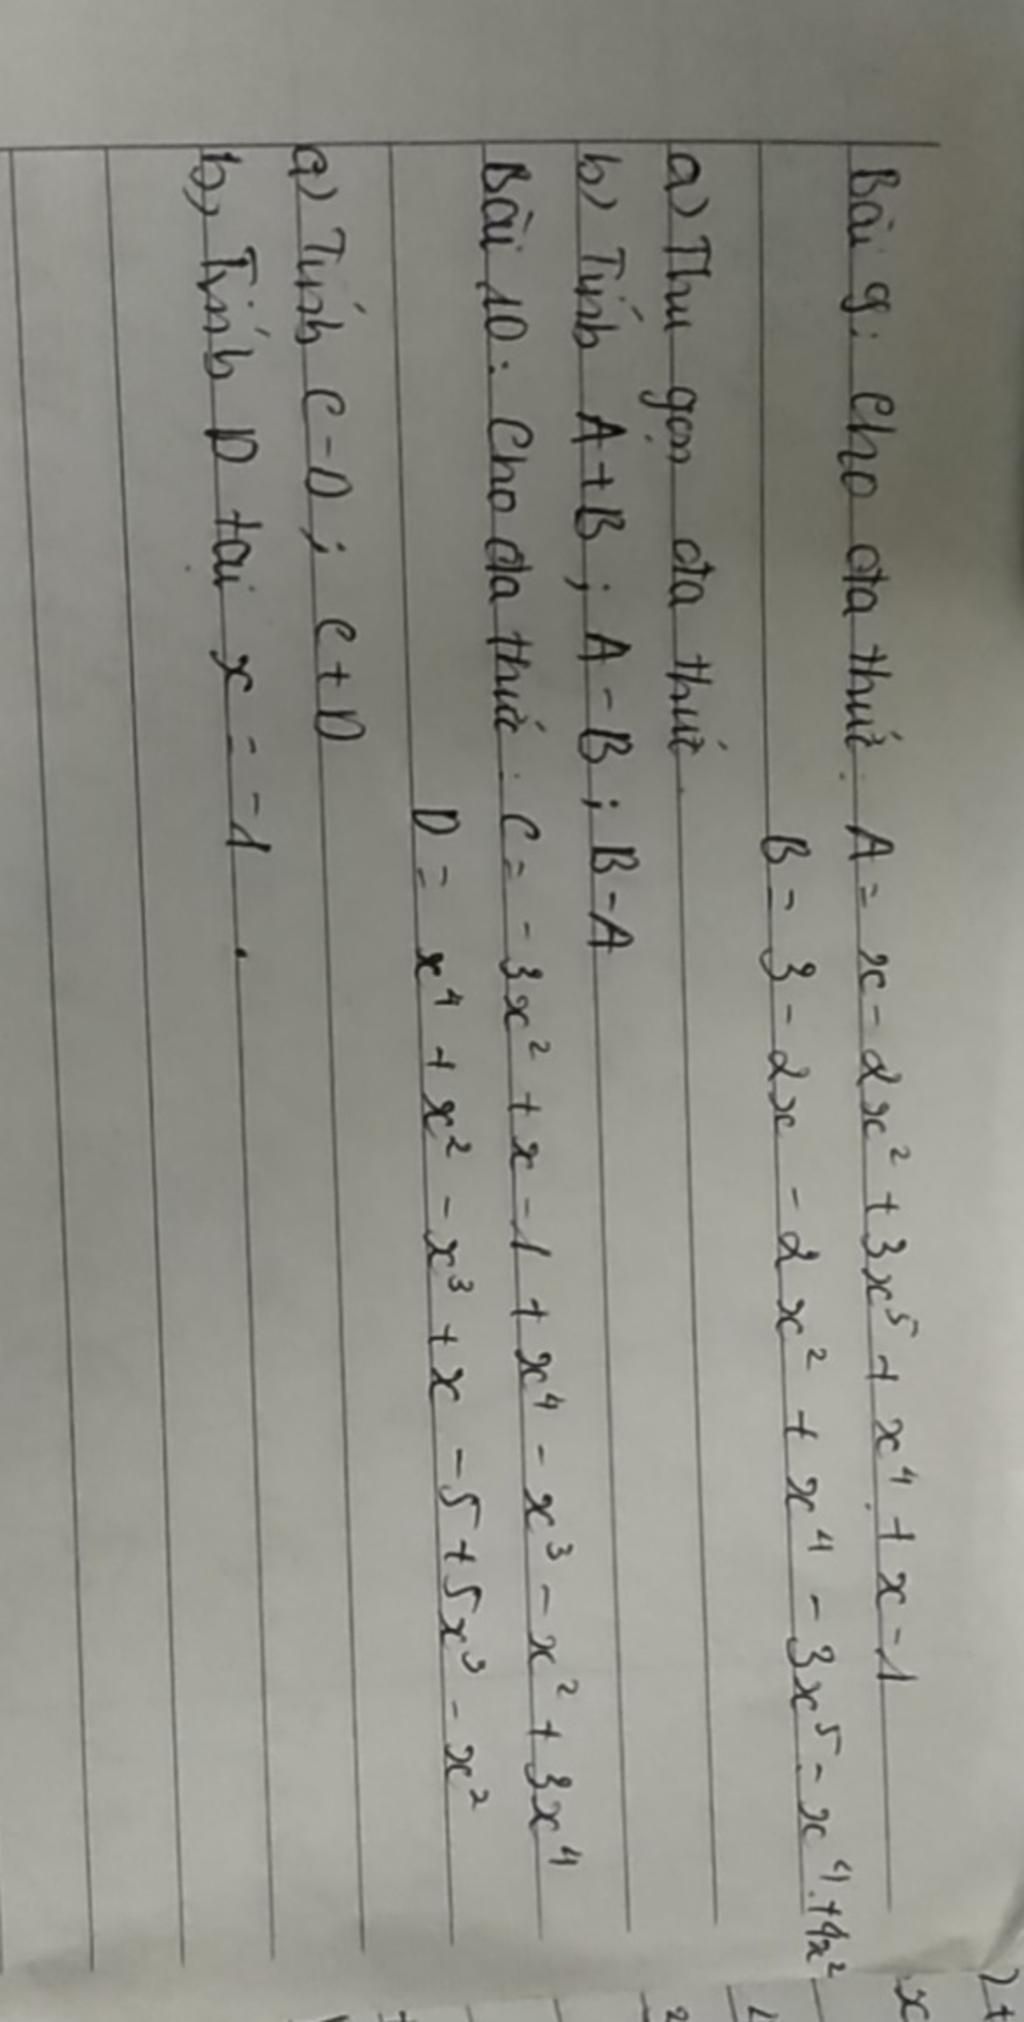 Bài 9: Cho đa thức: A = x - 2x² + 3x⁵ + x⁴ + x - 1
B = 3 - 2x - 2x² + x⁴ - 3x⁵ - x⁴ + 4x²
a) Thu gọn đa thức.
b) Tính A+B ; A-B ; B-A
Bài 10: Cho đa thức: C = -3x² + x - 1 + x⁴ - x³ - x² + 3x⁴
D = x⁴ + x² - x³ + x - 5 + 5x³ - x²
a) Tính C-D ; C+D
b) Tính D tại x = -1.